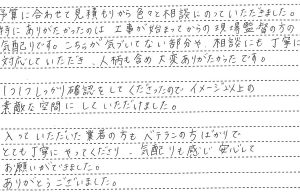 予算に合わせて見積もりから色々と相談にのっていただきました。
特にありがたかったのは 工事が始まってからの現場監督の方の
気配りです。こちらが気づいてない部分や 相談にも丁寧に
対応していただき 人柄も含め大変ありがたかったです。
1つ1つしっかり確認をしてくださったので イメージ以上の
素敵な空間に していただけました。
入っていただいた業者の方も ベテランの方ばかりで
とても丁寧にやってくださり 気配りも感じ 安心して
お願いができました。
ありがとうございました。